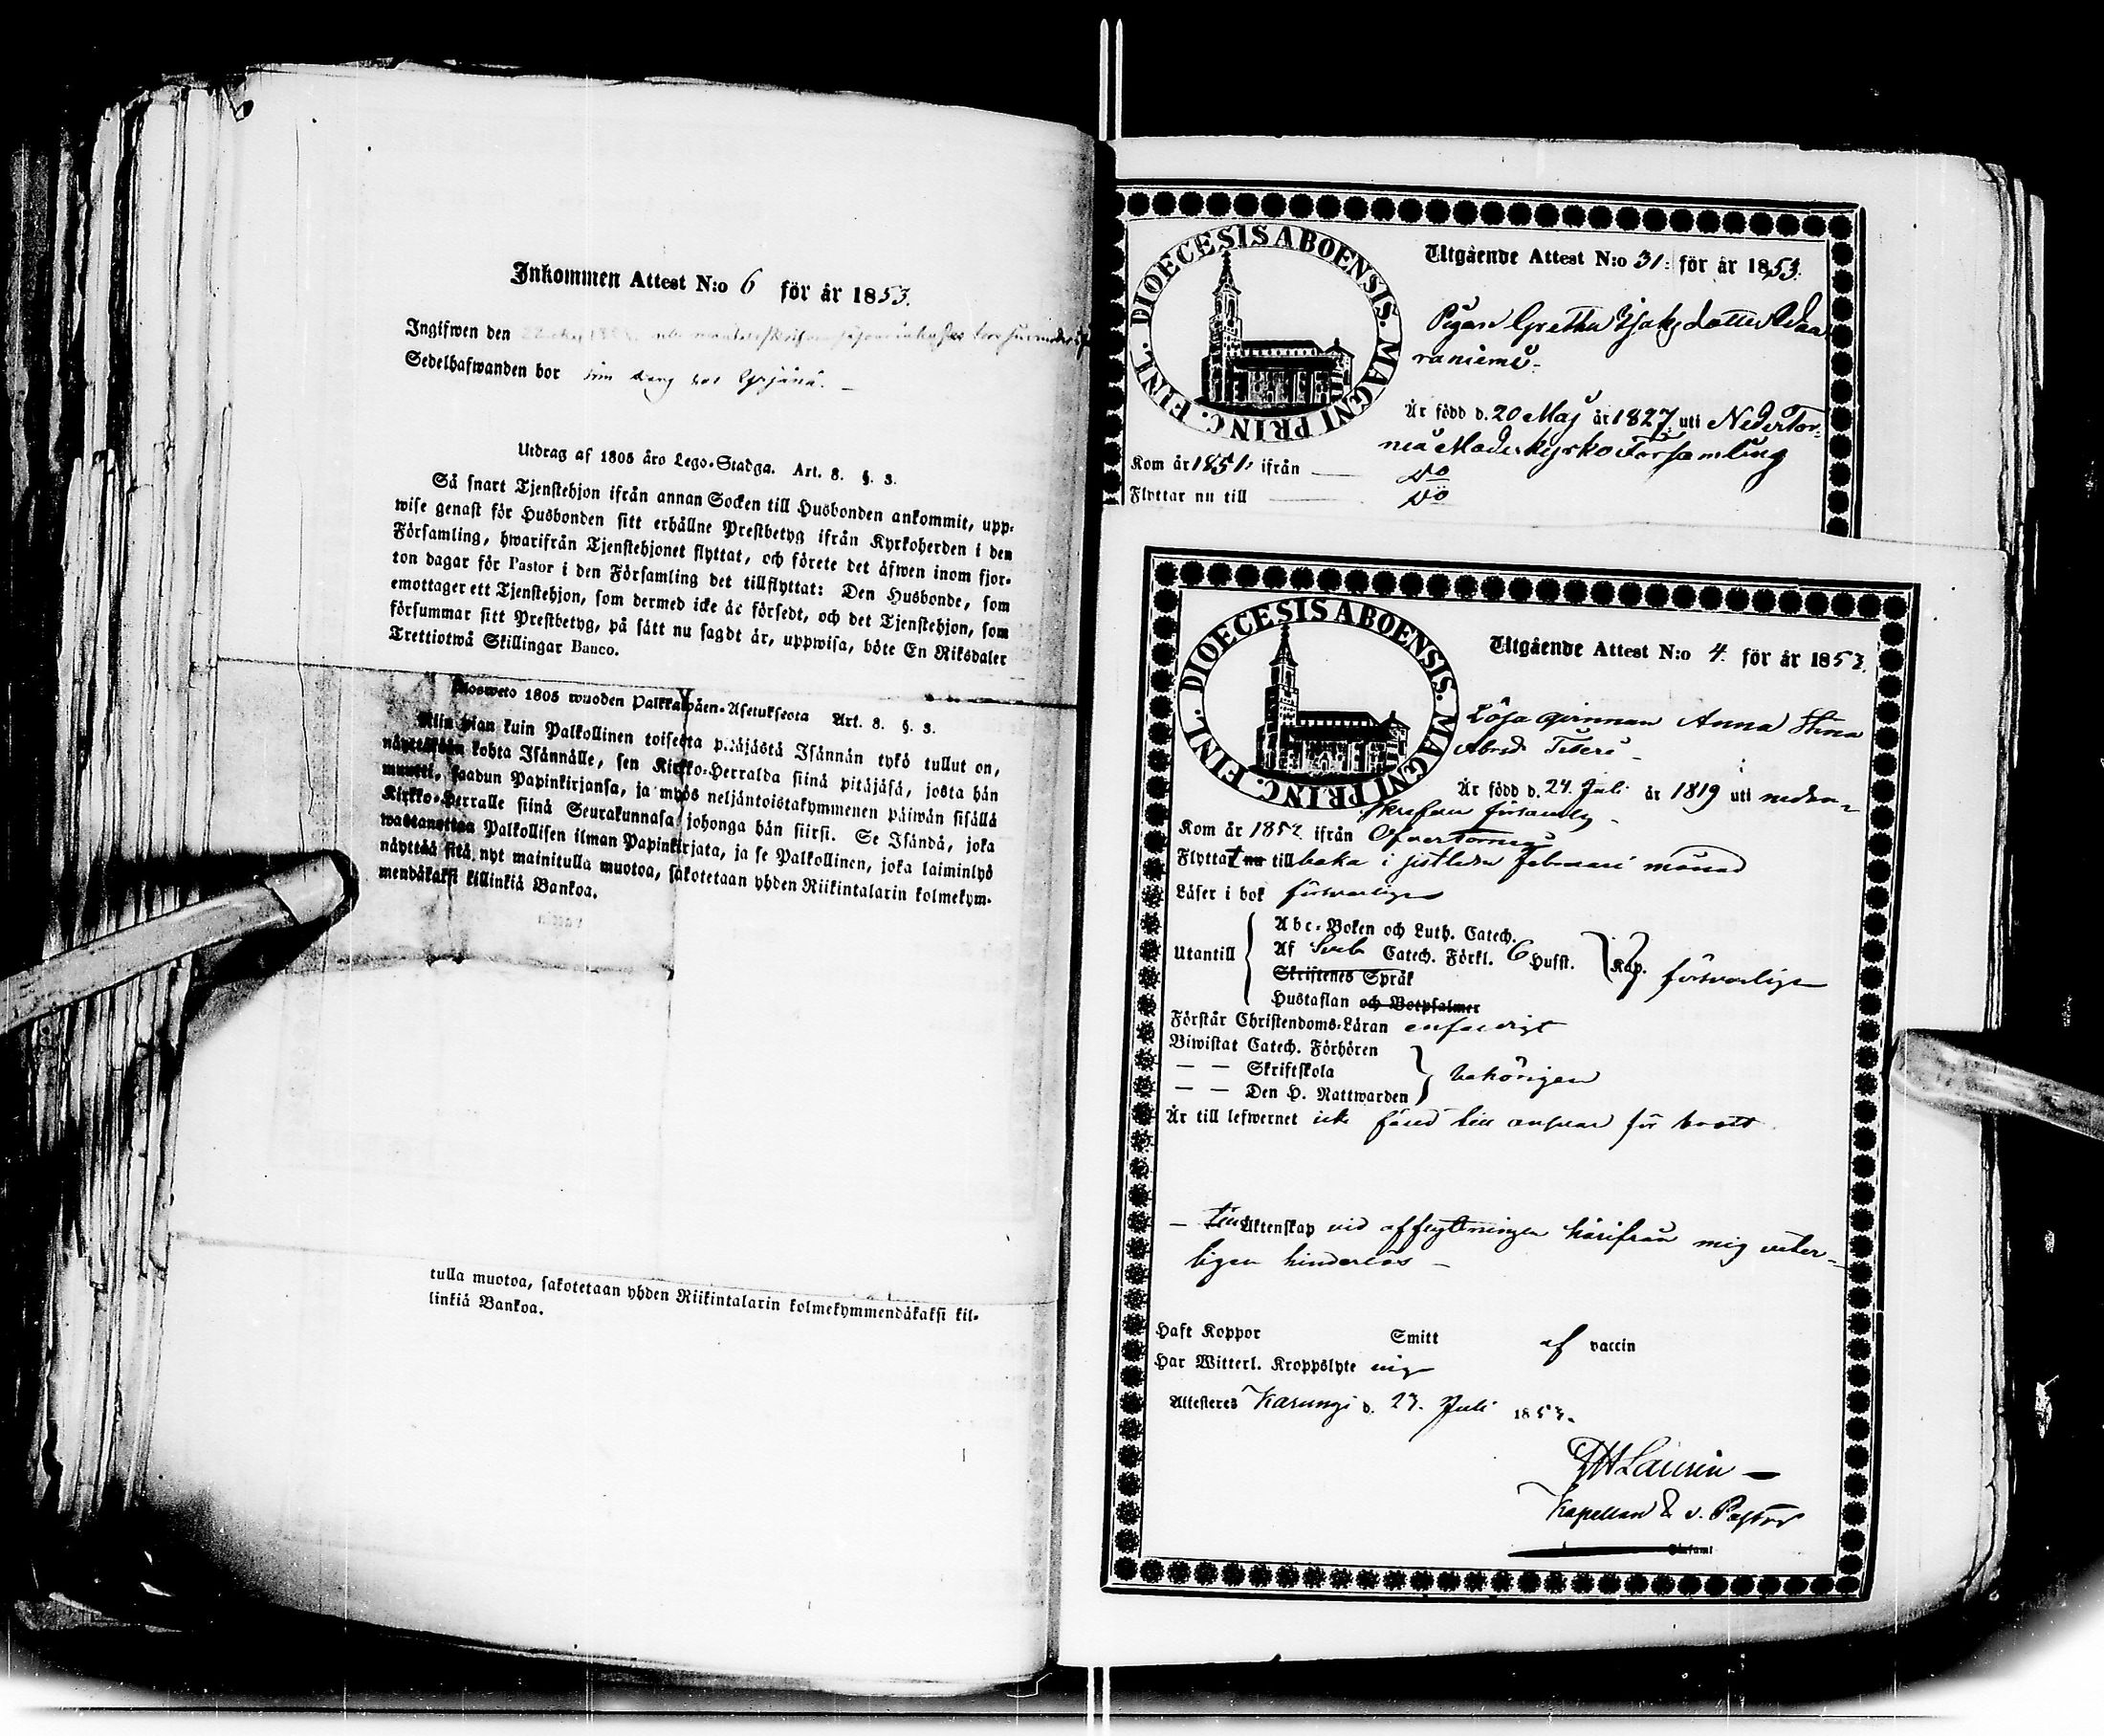 Inkommen Attest N:o 6 för år 1853.
Ingifwen den
Sedelhafwanden bor som
Utdrag af 1805 års Lego-Stadga. Art. 8. §. 3.
Så snart Tjenstehjon ifrån annan Socken till Husbonden ankommit, upp-
wise genast för Husbonden sitt erhållne Prestbetyg ifrån Kyrkoherden i den
Församling, hwarifrån Tjenstehjonet flyttat, och förete det äfwen inom fjor-
ton dagar för Pastor i den Församling det tillflyttat: Den Husbonde, som
emottager ett Tjenstehjon, som dermed icke är försedt, och det Tjenstehjon, som
försummar sitt Prestbetyg, på sätt nu sagdt är, uppwisa, böte En Riksdaler
Trettiotwå Skillingar Banco.
Ulosweto 1805 wuoden Palkkawäen-Asetuksesta Art. 8. §. 3.
Niin pian kuin Palkollinen toisesta pitäjästä Isännän tykö tullut on,
näyttäkään kohta Isännälle, sen Kirkko-Herralda siinä pitäjäsä, josta hän
muutti, saadun Papinkirjansa, ja myös neljäntoistakymmenen päiwän sisällä
Kirkko-Herralle siinä Seurakunnasa johonga hän siirsi. Se Isändä, joka
wastanottaa Palkollisen ilman Papinkirjata, ja se Palkollinen, joka laiminlyö
näyttää sitä nyt mainitulla muotoa, sakotetaan yhden Riikintalarin kolmekym-
mendäkaksi killinkiä Bankoa.
vaccin
tulla muotoa, sakotetaan yhden Riikintalarin kolmekymmendäkaksi kil-
linkiä Bankoa.
DIOECESIS ABOENSIS. MAGNI PRINC. FINL.
Utgående Attest N:o 31: för år 1853.
Pigan Gretha Isaksdotter Waa
raniemi.
Är född d. 20 Maj år 1827 uti NederTor-
neå Moderkyrko Församling
Kom år 1851. ifrån — Do
Flyttar nu till — Do
DIOECESIS ABOENSIS. MAGNI PRINC. FINL.
Utgående Attest N:o 4. för år 1853.
Lösa qvinnan Anna Stina
Abrd:
Är född d. 24. Juli år 1819 uti nedan-
skrefne församlg
Kom år 1852 ifrån Öfvertorneå
Flyttat nu tillbaka i sistledne februari månad
Läser i bok försvarligen
Utantill
Abc-Boken och Luth. Catech.
Af Sveb Catech. Förkl. 6 Hufst. Kap. försvarligen
Skriftenes Språk
Hustaflan och Botpsalmer
Förstår Christendoms-Läran enfaldigt
Biwistat Catech. Förhören
— — Skriftskola behörigen
— — Den H. Nattwarden
Är till lefwernet icke förd till answar för brott
— till Äktenskap vid afflyttningen härifrån mig veter-
ligen hinderlös —
Haft Koppor Smitt af vaccin
Har Witterl. Kroppslyte ing
Attesteres Karungi d. 23. Juli 1853.
Laurin —
Kapellan & v. Pastor